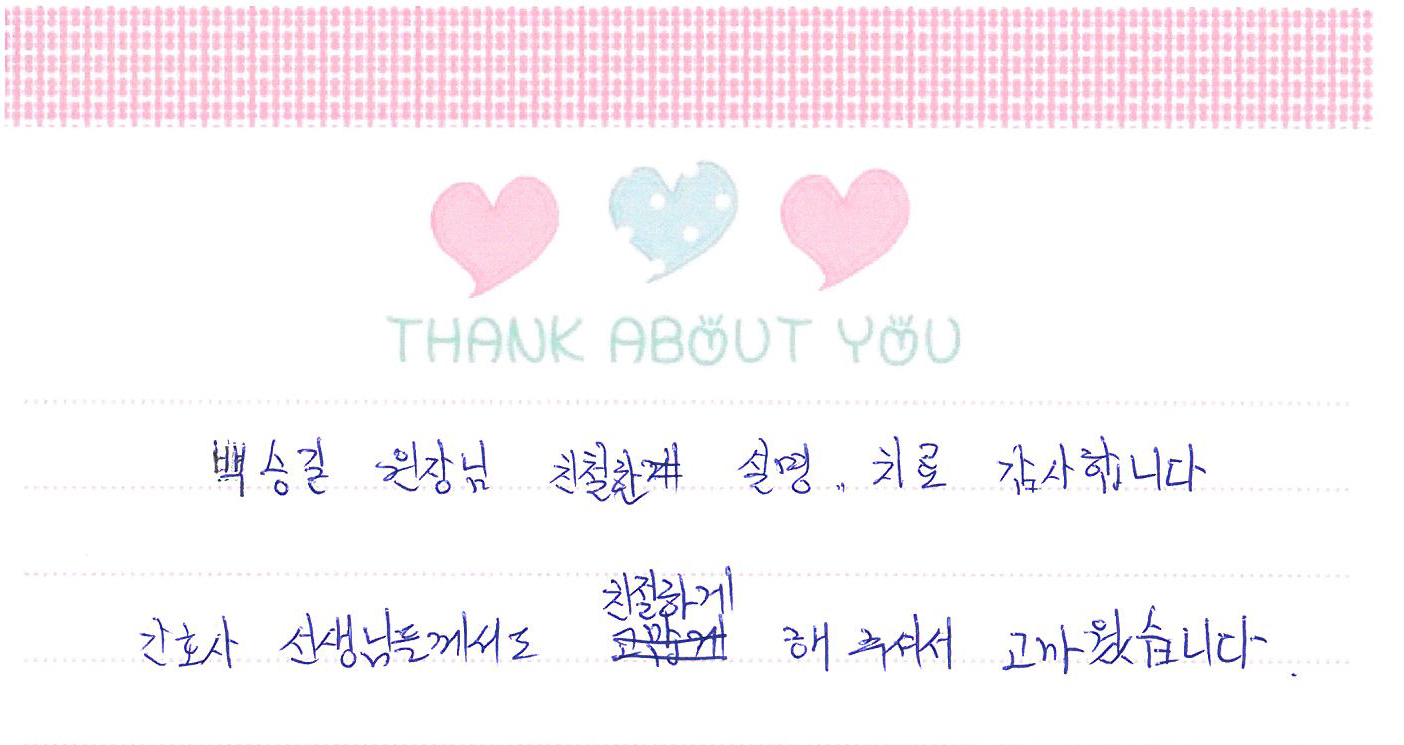 THANK ABOUT YOU
백승길 원장님 친철한걔 설명,, 치료 감사합니다
친절하게
간호사 선생님들께서도 해 주셔서 고까웠습니다.